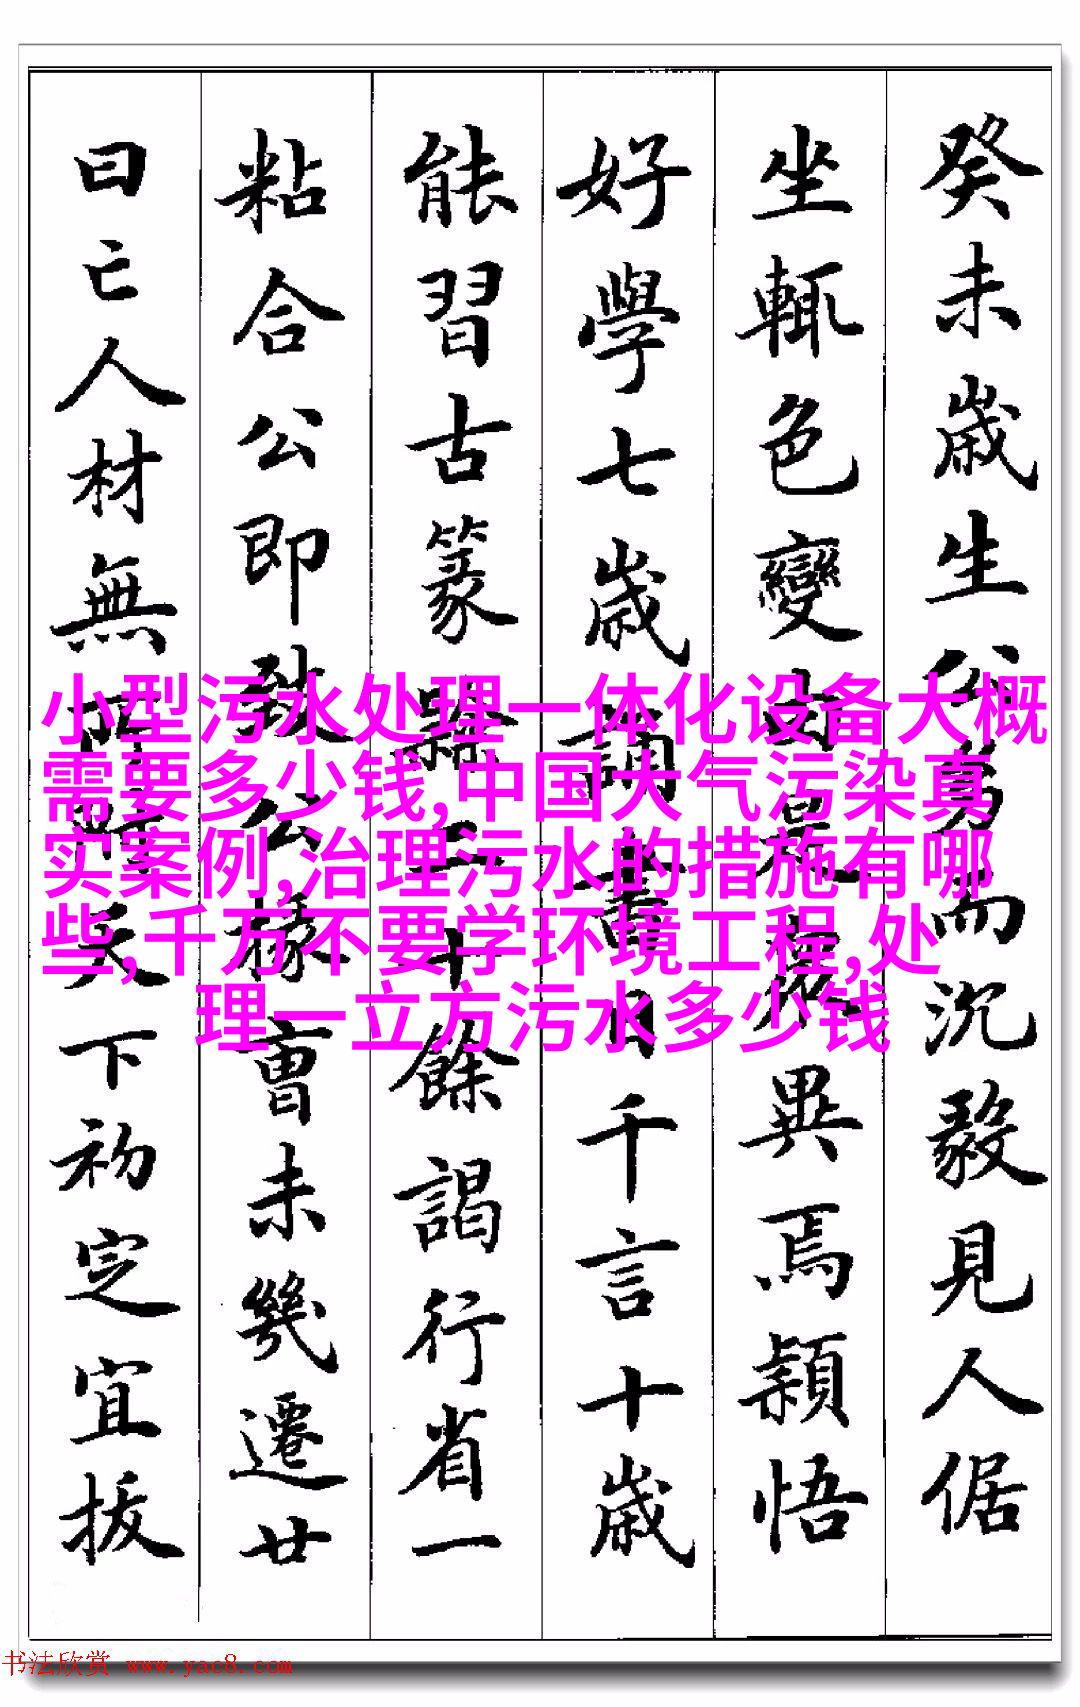 癸未歲生公為而沉毅見人倨
坐輒色變由是根異焉穎悟
好學七歲誦書日千言十歲
能習古篆籀二十餘謁行省一
粘合公即致公掾曹未幾遷廿
曰亡人材無所天下初定宜拔
小型污水处理一体化设备大概
需要多少钱,中国大气污染真
实案例,治理污水的措施有哪
些,千万不要学环境工程,处
理一立方污水多少钱
书法欣赏 www.yac8.com